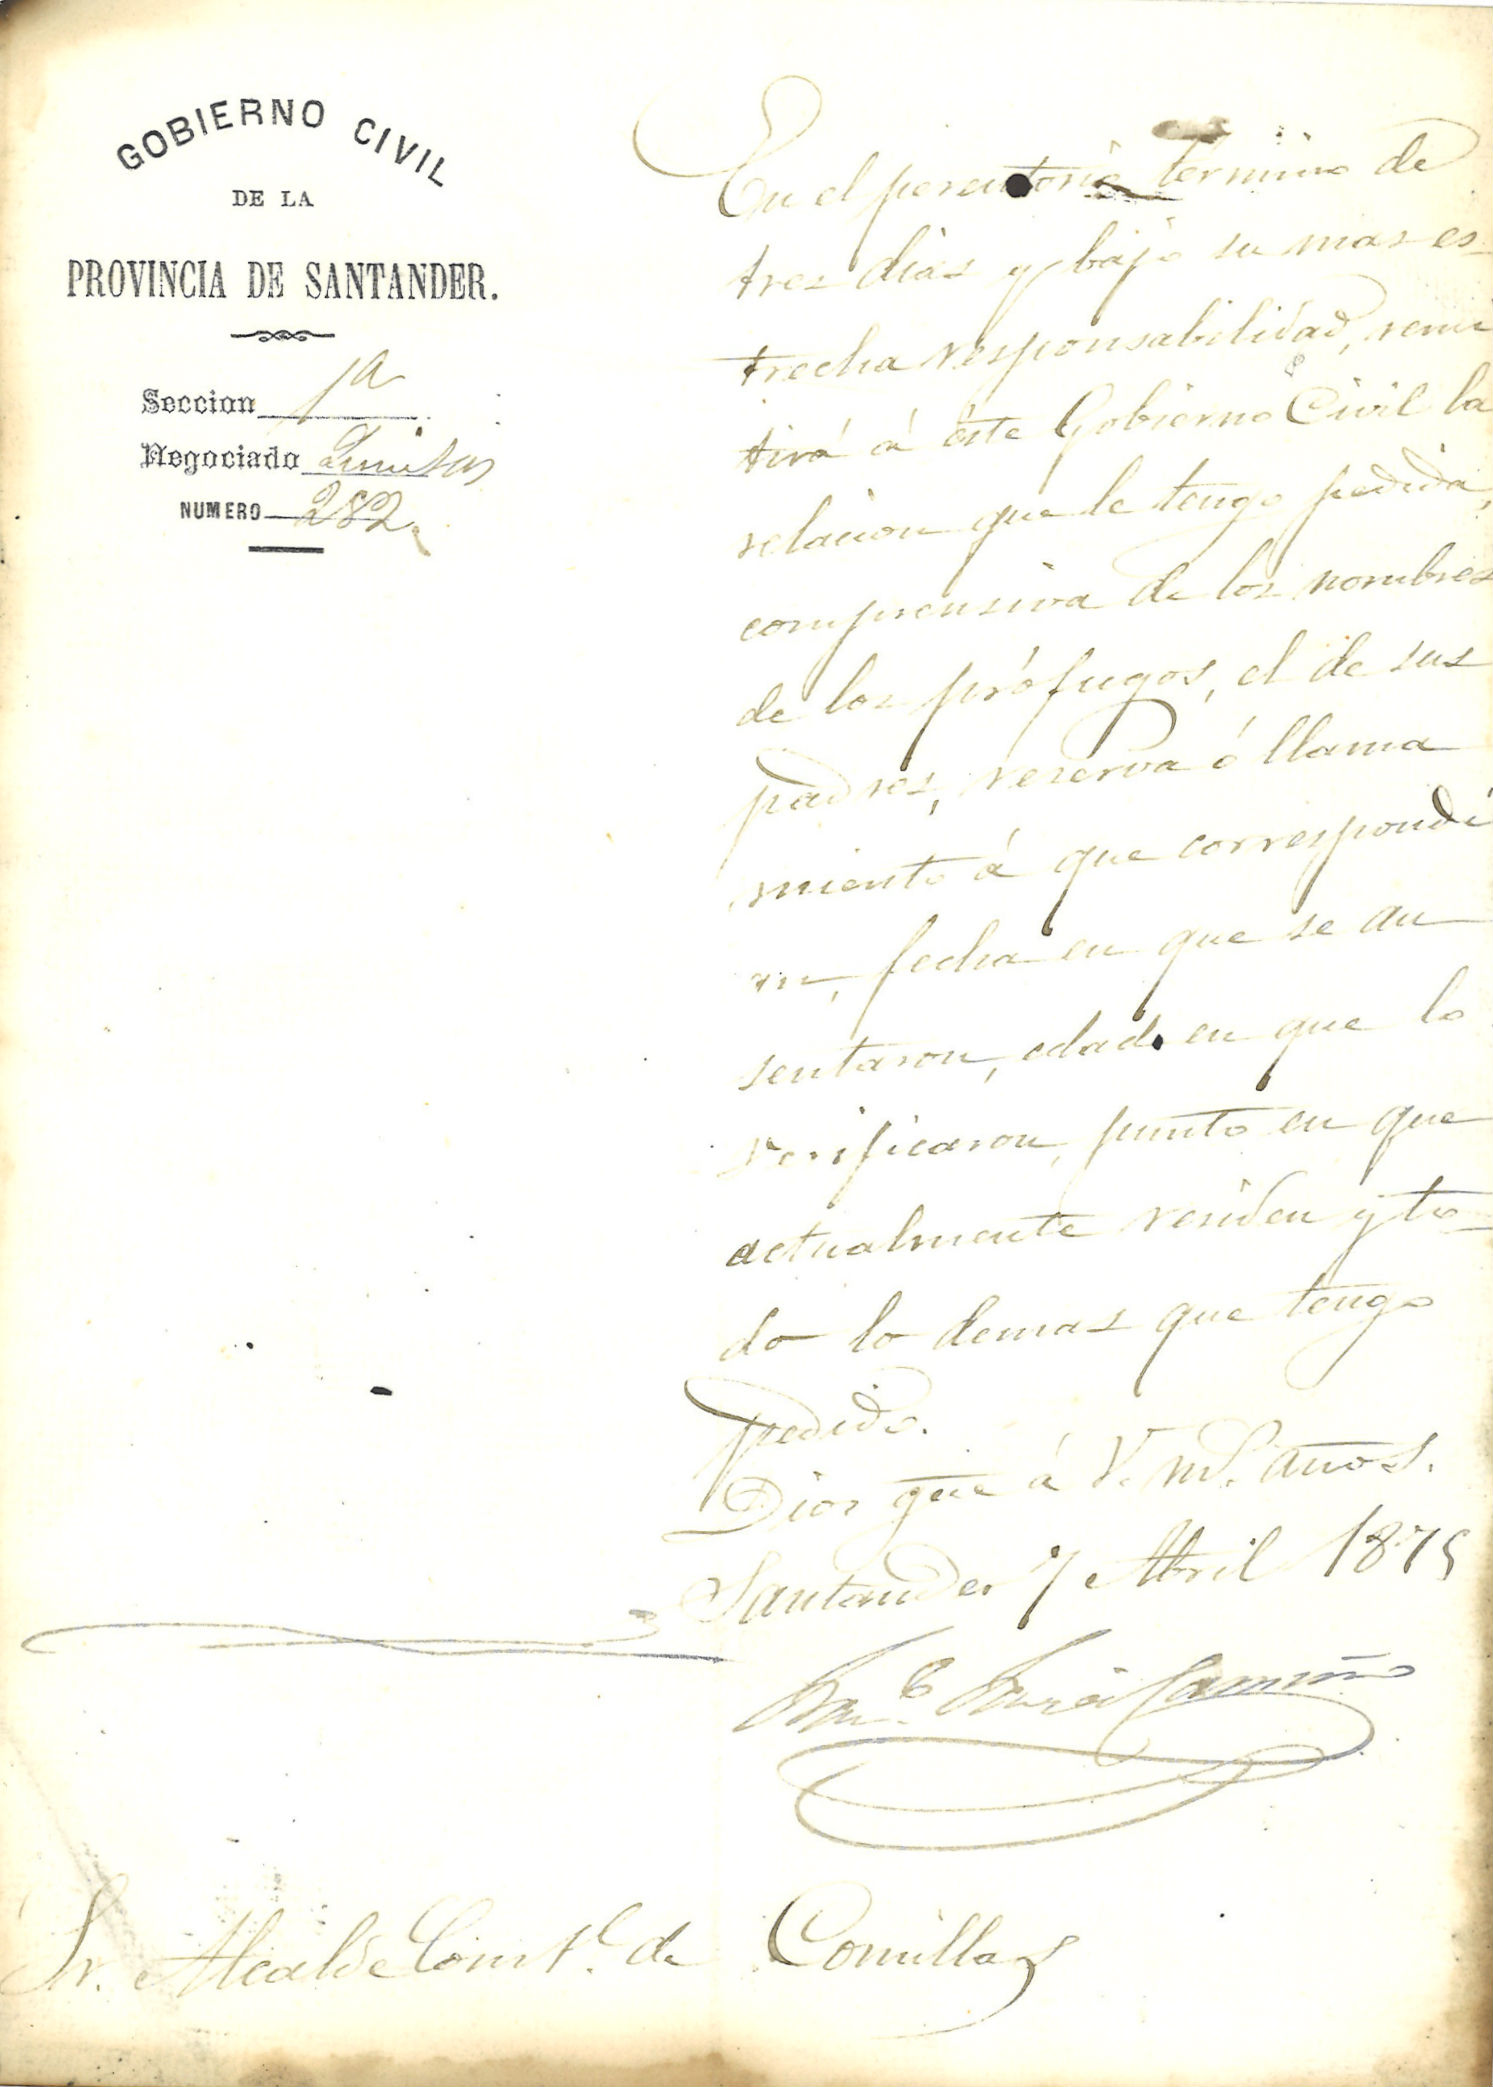 GOBIERNO CIVIL
DE LA
PROVINCIA DE SANTANDER.
Seccion 1a
Negociado Quintas
NUMERO 282
En el perentorio termino de
tres dias y bajo su mas es-
trecha responsabilidad, remi
tirá á éste Gobierno Civil la
relacion que le tengo pedida,
comprensiva de los nombres
de los prófugos, el de sus
padres, reserva ó llama
miento á que correspondi
an, fecha en que se au
sentaron, edad en que lo
verificaron, punto en que
actualmente residen y to-
do lo demas que tengo
pedido.
Dios gue á V. ms. años.
Santander 7 Abril 1875
Sr. Alcalde Const.l de Comillas